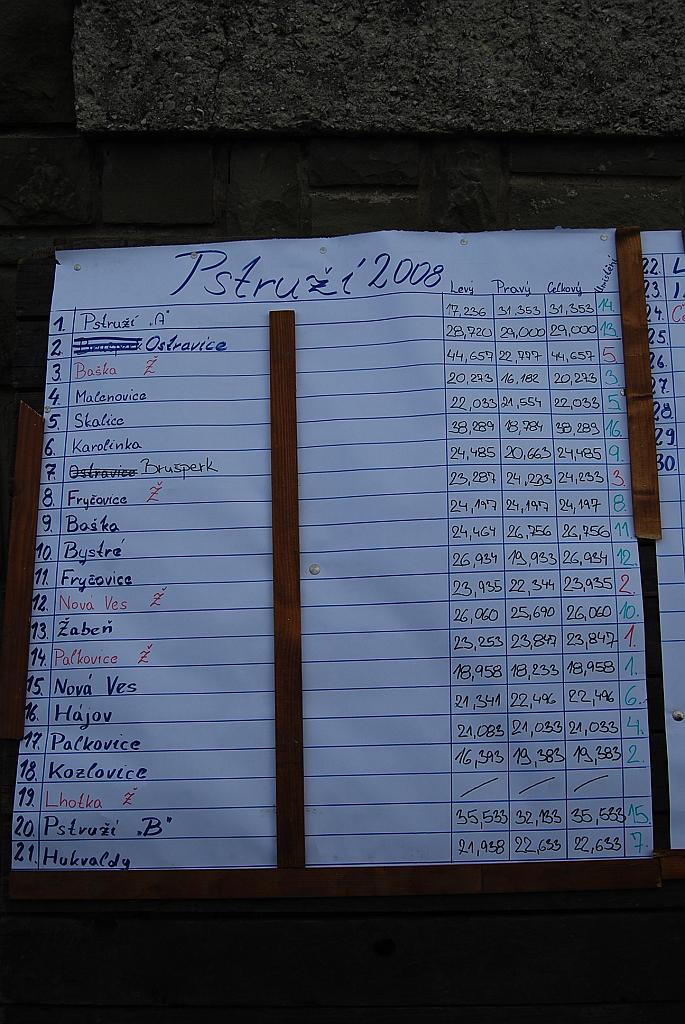 Pstruží 2008
Levý Pravý Celkový Umístění
1. Pstruží "A" 17,236 31,353 31,353 14.
2. Ostravice 28,720 29,000 29,000 13.
3. Baška Ž 44,657 22,777 44,657 5.
4. Malenovice 20,273 16,182 20,273 3.
5. Skalice 22,033 21,554 22,033 5.
6. Karolinka 38,289 18,784 38,289 16.
7. Ostravice Brušperk 24,485 20,663 24,485 9.
8. Fryčovice Ž 23,287 24,233 24,233 3.
9. Baška 24,197 24,197 24,197 8.
10. Bystré 24,464 26,756 26,756 11.
11. Fryčovice 26,934 19,933 26,934 12.
12. Nová Ves Ž 23,935 22,344 23,935 2.
13. Žabeň 26,060 25,690 26,060 10.
14. Palkovice Ž 23,253 23,847 23,847 1.
15. Nová Ves 18,958 18,233 18,958 1.
16. Hájov 21,341 22,496 22,496 6.
17. Palkovice 21,083 21,033 21,033 4.
18. Kozlovice 16,393 19,383 19,383 2.
19. Lhotka Ž / / /
20. Pstruží "B" 35,533 32,133 35,533 15.
21. Hukvaldy 21,938 22,633 22,633 7.
22. L
23.
24.
25.
26.
27.
28.
29
30.